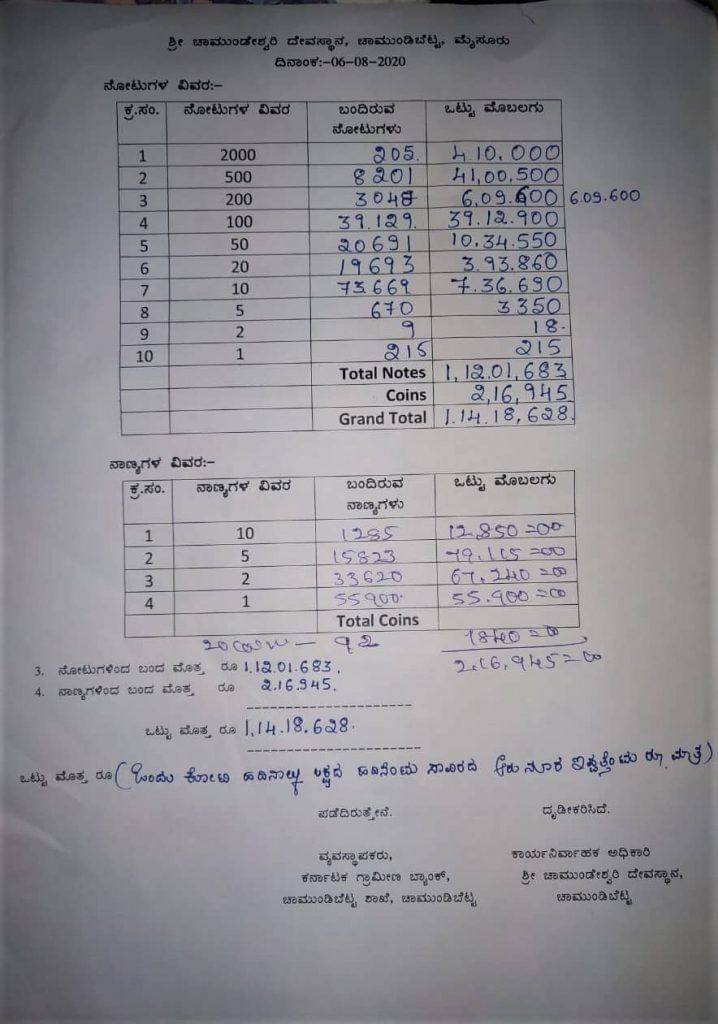 ಶ್ರೀ ಚಾಮುಂಡೇಶ್ವರಿ ದೇವಸ್ಥಾನ, ಚಾಮುಂಡಿಬೆಟ್ಟ, ಮೈಸೂರು
ದಿನಾಂಕ:-06-08-2020
ನೋಟುಗಳ ವಿವರ:-
ಕ್ರ.ಸಂ. ನೋಟುಗಳ ವಿವರ ಬಂದಿರುವ ನೋಟುಗಳು ಒಟ್ಟು ಮೊಬಲಗು
1 2000 205. 4.10.000
2 500 8201 41,00.500
3 200 3048 6,09.600 6.09.600
4 100 39.129. 39.12.900
5 50 20691 10.34.550
6 20 19693 3.93.860
7 10 73669 7.36.690
8 5 670 3350
9 2 9 18.
10 1 215 215
Total Notes 1,12.01,683
Coins 2,16,945
Grand Total 1.14.18,628.
ನಾಣ್ಯಗಳ ವಿವರ:-
ಕ್ರ.ಸಂ. ನಾಣ್ಯಗಳ ವಿವರ ಬಂದಿರುವ ನಾಣ್ಯಗಳು ಒಟ್ಟು ಮೊಬಲಗು
1 10 1285 12,850=00
2 5 15823 79.115=00
3 2 33620 67.240=00
4 1 55900. 55.900=00
Total Coins
20 - 92 1840=00
2,16,945=00
3. ನೋಟುಗಳಿಂದ ಬಂದ ಮೊತ್ತ ರೂ 1,12.01.683.
4. ನಾಣ್ಯಗಳಿಂದ ಬಂದ ಮೊತ್ತ ರೂ 2.16.945.
ಒಟ್ಟು ಮೊತ್ತ ರೂ 1,14.18.628.
ಒಟ್ಟು ಮೊತ್ತ ರೂ (ಒಂದು ಕೋಟಿ ಹದಿನಾಲ್ಕು ಲಕ್ಷದ ಹದಿನೆಂಟು ಸಾವಿರದ ಆರು ನೂರ ಇಪ್ಪತ್ತೆಂಟು ರೂ ಮಾತ್ರ)
ಪಡೆದಿರುತ್ತೇನೆ. ದೃಡೀಕರಿಸಿದೆ.
ವ್ಯವಸ್ಥಾಪಕರು, ಕಾರ್ಯನಿರ್ವಾಹಕ ಅಧಿಕಾರಿ
ಕರ್ನಾಟಕ ಗ್ರಾಮೀಣ ಬ್ಯಾಂಕ್, ಶ್ರೀ ಚಾಮುಂಡೇಶ್ವರಿ ದೇವಸ್ಥಾನ,
ಚಾಮುಂಡಿಬೆಟ್ಟ ಶಾಖೆ, ಚಾಮುಂಡಿಬೆಟ್ಟ ಚಾಮುಂಡಿಬೆಟ್ಟ